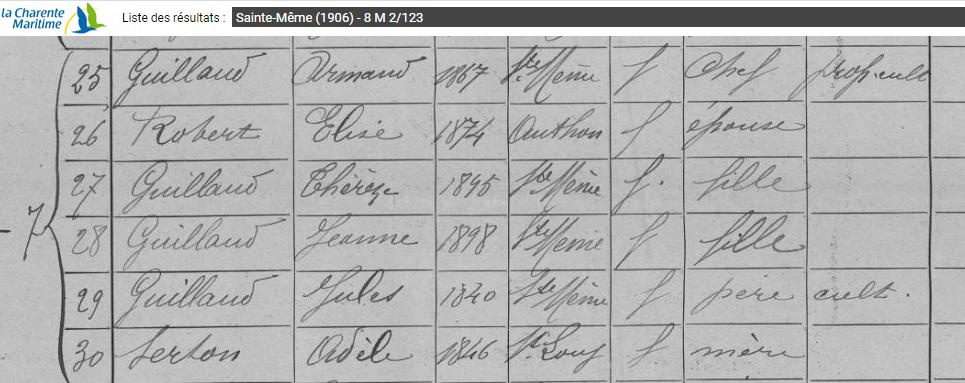 la Charente Maritime Liste des résultats : Sainte-Même (1906) - 8 M 2/123
25 Guillaud Armand 1867 Ste Même f Chef prop. cult
26 Robert Elise 1874 Authon f épouse
27 Guillaud Thérèze 1895 Ste Même f. fille
- 7 28 Guillaud Jeanne 1898 Ste Meme f fille
29 Guillaud Jules 1840 Ste Même f père cult.
30 Adèle 1846 f. mère